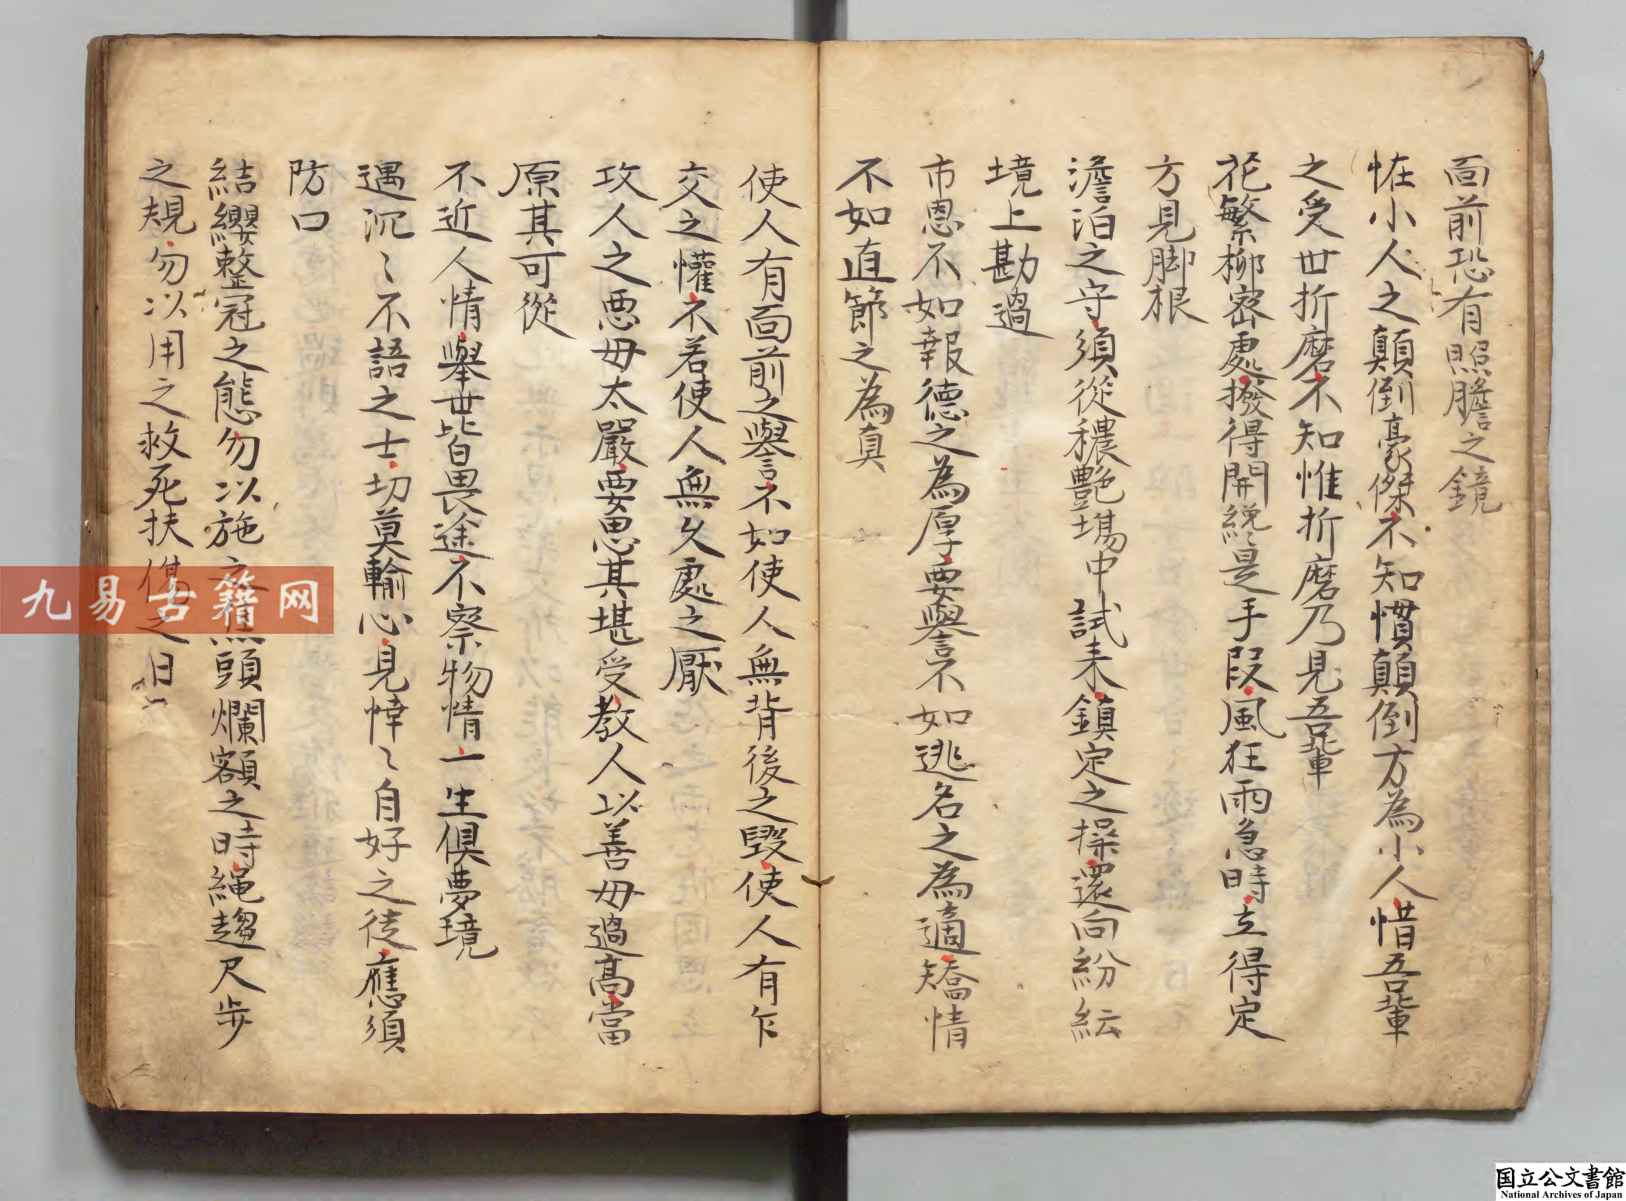 面前恐有照膽之鏡
恠小人之顛倒豪傑不知慣顛倒方為小人惜吾輩
之受世折磨不知惟折磨乃見吾輩
花繁柳密處撥得開纔是手段風狂雨急時立得定
方見脚根
澹泊之守須從穠艷場中試来鎮定之操還向紛紜
境上勘過
市恩不如報德之為厚要譽不如逃名之為適矯情
不如直節之為真
使人有面前之譽不如使人無背後之毀使人有乍
交之懽不若使人無久處之厭
攻人之悪毋太嚴要思其堪受教人以善毋過高當
原其可從
不近人情舉世皆畏途不察物情一生俱夢境
遇沉〻不語之士切莫輸心見悻〻自好之徒應須
防口
結纓整冠之態勿以施之焦頭爛額之時繩趨尺步
之規勿以用之救死扶傷之日
九易古籍网
国立公文書館
National Archives of Japan